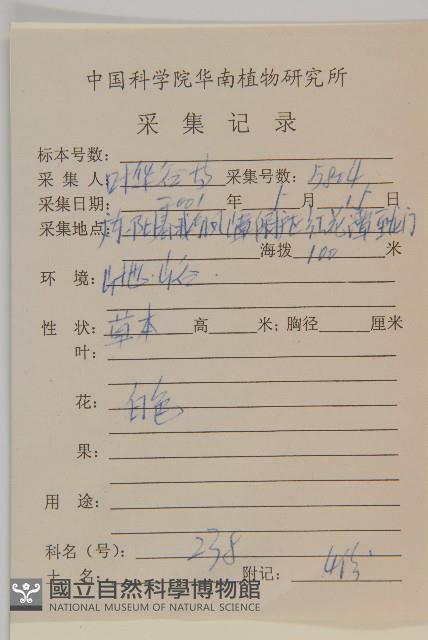 中国科学院华南植物研究所
采集记录
标本号数：
采集人：叶华谷 采集号数：5824
采集日期：2001年 月 15日
采集地点：
海拨 100 米
环境：山地.山谷.
性状：草本 高 米；胸径 厘米
叶：
花：白色
果：
用途：
科名（号）：238
土名： 附记：4份
國立自然科學博物館
NATIONAL MUSEUM OF NATURAL SCIENCE